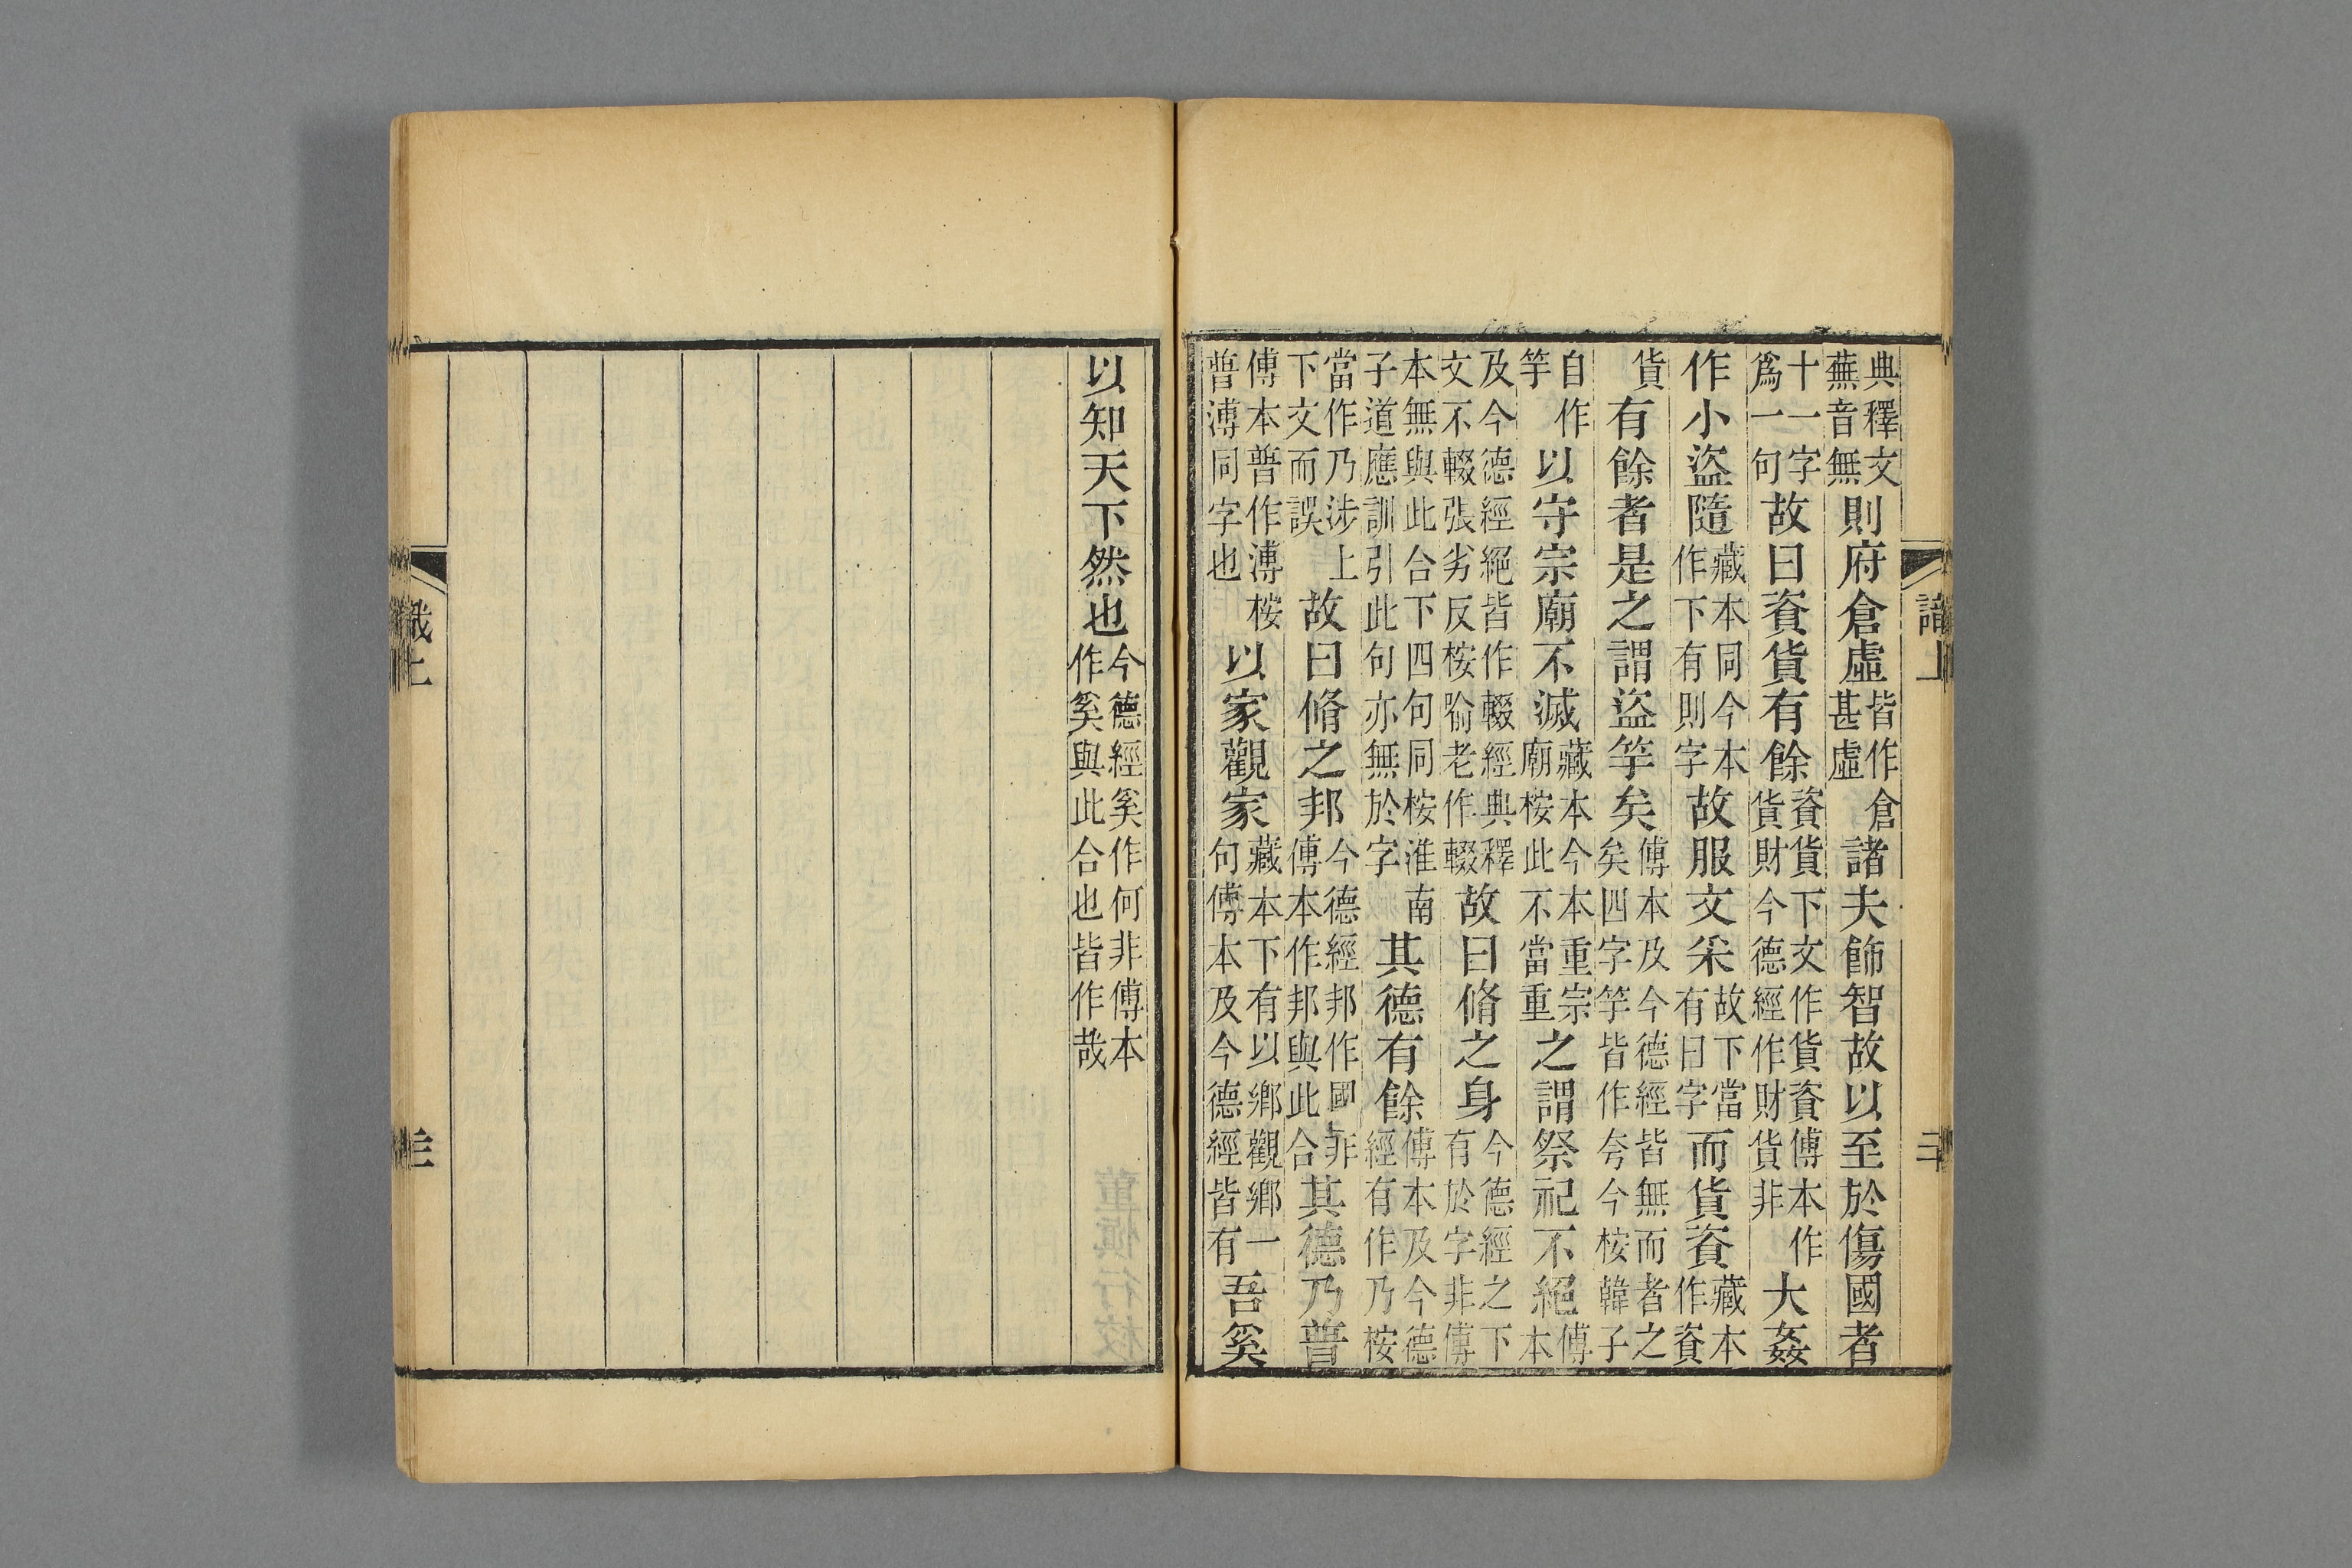 典釋文蕪音無則府倉虛皆作倉甚虛諸夫飾智故以至於傷國者
十一字爲一句故曰資貨有餘資貨下文作貨資傅本作貨財今德經作財貨非大姦
作小盜隨藏本同今本作下有則字故服文采故下當有曰字而貨資藏本作資
貨有餘者是之謂盜竽矣傅本及今德經皆無而者之矣四字竽皆作夸今桉韓子
自作竽以守宗廟不滅藏本今本重宗廟桉此不當重之謂祭祀不絕傅本
及今德經絕皆作輟經典釋文不輟張劣反桉喻老作輟故曰脩之身今德經之下有於字非傅
本無與此合下四句同桉淮南子道應訓引此句亦無於字其德有餘傅本及今德經有作乃桉
當作乃涉上下文而誤故曰脩之邦今德經邦作國非傅本作邦與此合其德乃普
傅本普作溥桉普溥同字也以家觀家藏本下有以鄉觀鄉一句傅本及今德經皆有吾奚
以知天下然也今德經奚作何非傅本作奚與此合也皆作哉
識上